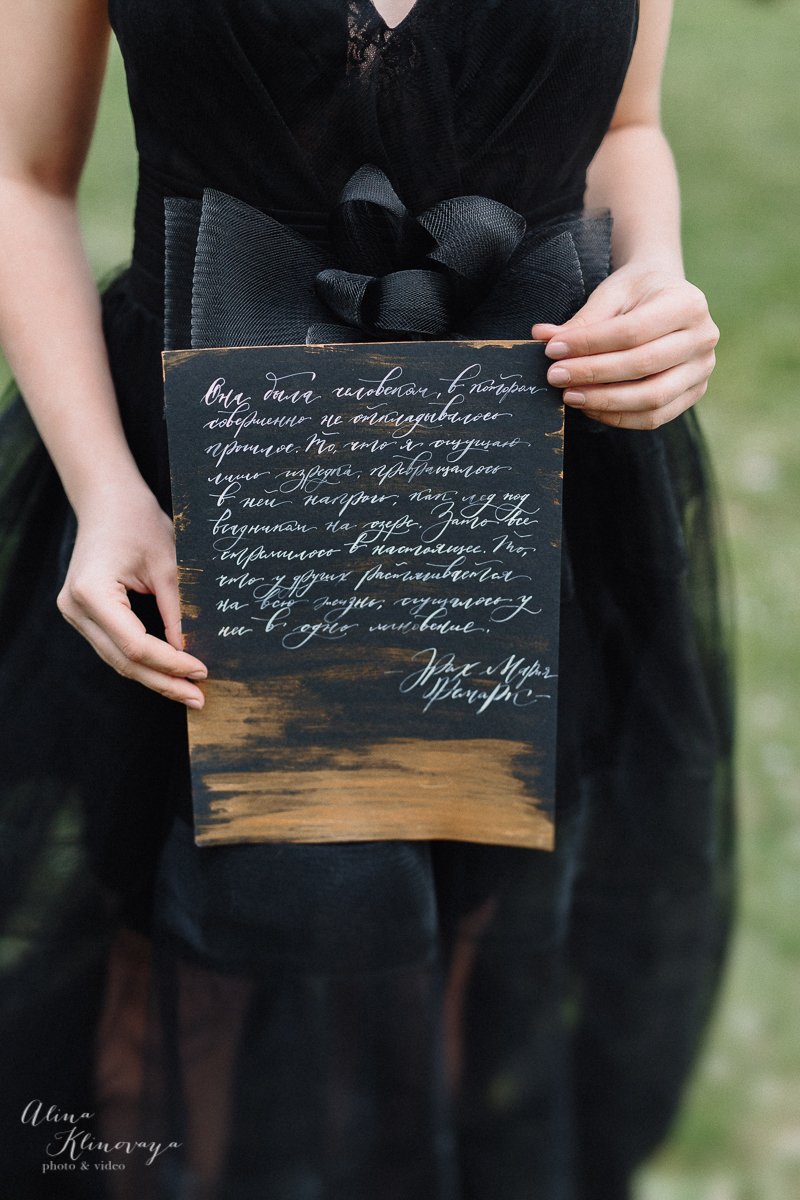 Она была человеком, в котором
совершенно не откладывалось
прошлое. То, что я ощущаю
лишь изредка, превращалось
в ней напрочь, как лед под
всадником на озере. Зато все
стремилось в настоящее. То,
что у других растягивается
на всю жизнь, сгущалось у
нее в одно мгновение.
- Эрих Мария
Ремарк -
Alina
Klinovaya
photo & video